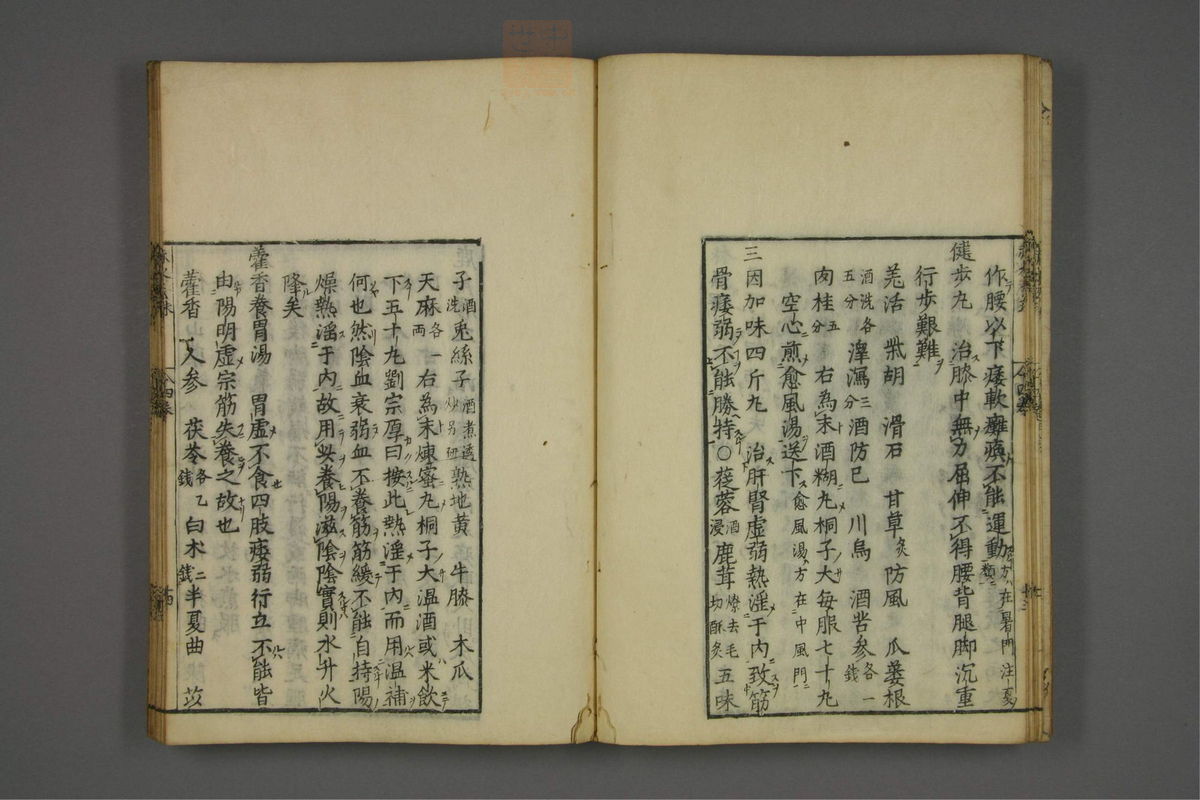 作腰以下痿軟癱瘓不能運動方在暑門注夏類
健步丸 治膝中無力屈伸不得腰背腿脚沉重
行歩艱難
羗活 柴胡 滑石 甘草炙 防風 瓜蔞根
酒洗各五分 澤瀉三分 酒防已 川烏 酒苦参各一錢
肉桂五分 右為末酒糊丸桐子大毎服七十丸
空心煎愈風湯送下愈風湯方在中風門
三因加味四斤丸 治肝腎虚弱熱淫于内致筋
骨痿弱不能勝持○蓯蓉酒浸 鹿茸燎去毛切酥炙 五味
子酒洗 兎絲子酒煮透炒另研 熟地黄 牛膝 木瓜
天麻各一两 右為末煉蜜丸桐子大温酒或米飲
下五十丸劉宗厚曰按此熱淫于内而用温補
何也然陰血衰弱血不養筋筋緩不能自持陽
燥熱淫于内故用此養陽滋陰陰實則水升火
降矣
藿香養胃湯 胃虚不食四肢痿弱行立不能皆
由陽明虚宗筋失養之故也
藿香 人参 茯苓各乙錢 白朮二錢 半夏曲 苡